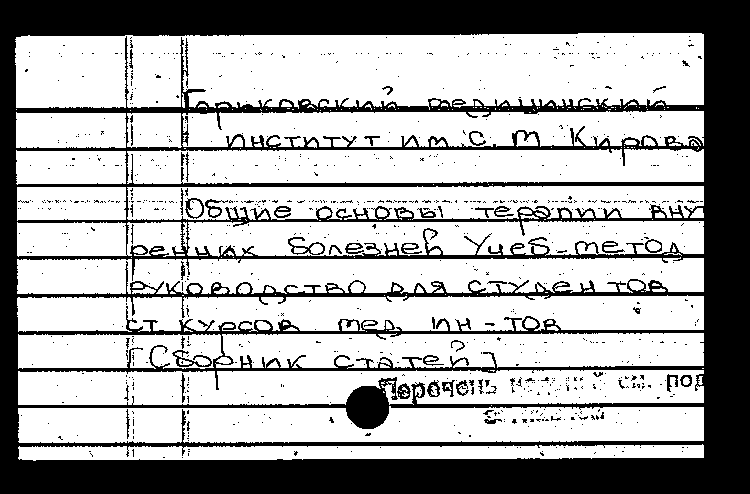 Горьковский медицинский
институт им. С. М Кирова
Общие основы терапии внут
ренних болезней Учеб-метод
руководство для студентов
ст курсов мед ин-тов
[Сборник статей]
Перечень см. под